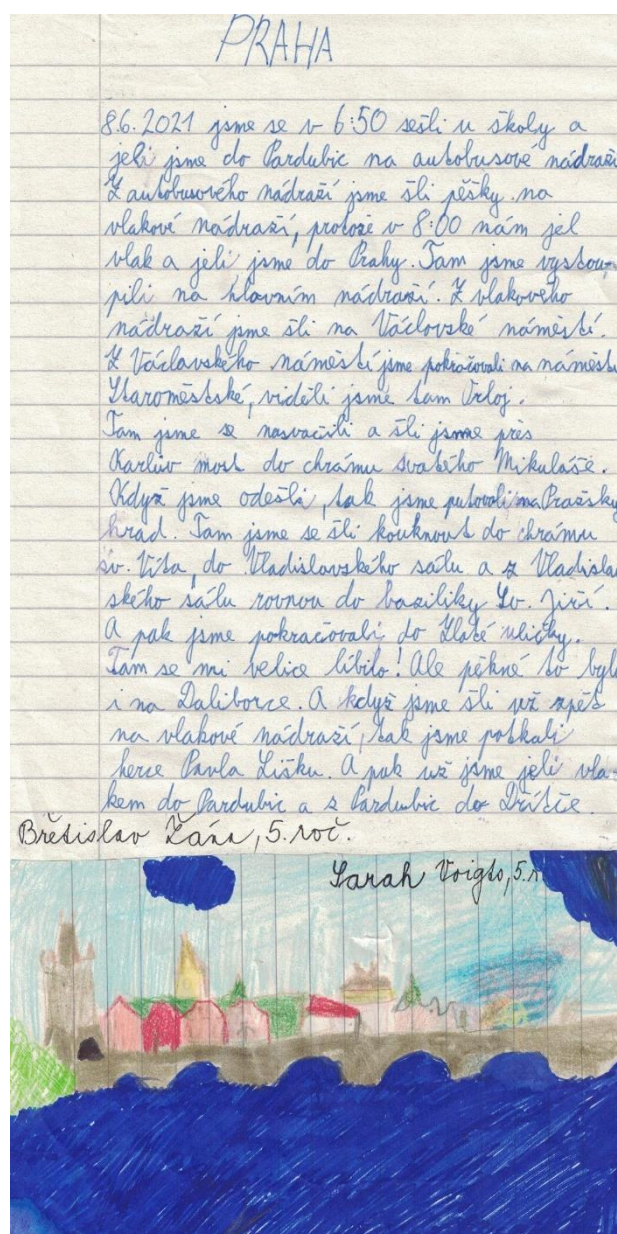 PRAHA
8.6.2021 jsme se v 6:50 sešli u školy a
jeli jsme do Pardubic na autobusové nádraží
Z autobusového nádraží jsme šli pěšky na
vlakové nádraží, protože v 8:00 nám jel
vlak a jeli jsme do Prahy. Tam jsme vystou-
pili na hlavním nádraží. Z vlakového
nádraží jsme šli na Václavské náměstí.
Z Václavského náměstí jsme pokračovali na náměstí
Staroměstské, viděli jsme tam Orloj.
Tam jsme se nasvačili a šli jsme přes
Karlův most do chrámu svatého Mikuláše.
Když jsme odešli, tak jsme putovali na Pražský
hrad. Tam jsme se šli kouknout do chrámu
sv. Víta, do Vladislavského sálu a z Vladislav
ského sálu rovnou do baziliky Sv. Jiří.
A pak jsme pokračovali do Zlaté uličky.
Tam se mi velice líbilo! Ale pěkné to bylo
i na Daliborce. A když jsme šli už zpět
na vlakové nádraží, tak jsme potkali
herce Pavla Lišku. A pak už jsme jeli vla-
kem do Pardubic a z Pardubic do Dříteče.
Břetislav Žána, 5. roč.
Sarah Voigts, 5. r